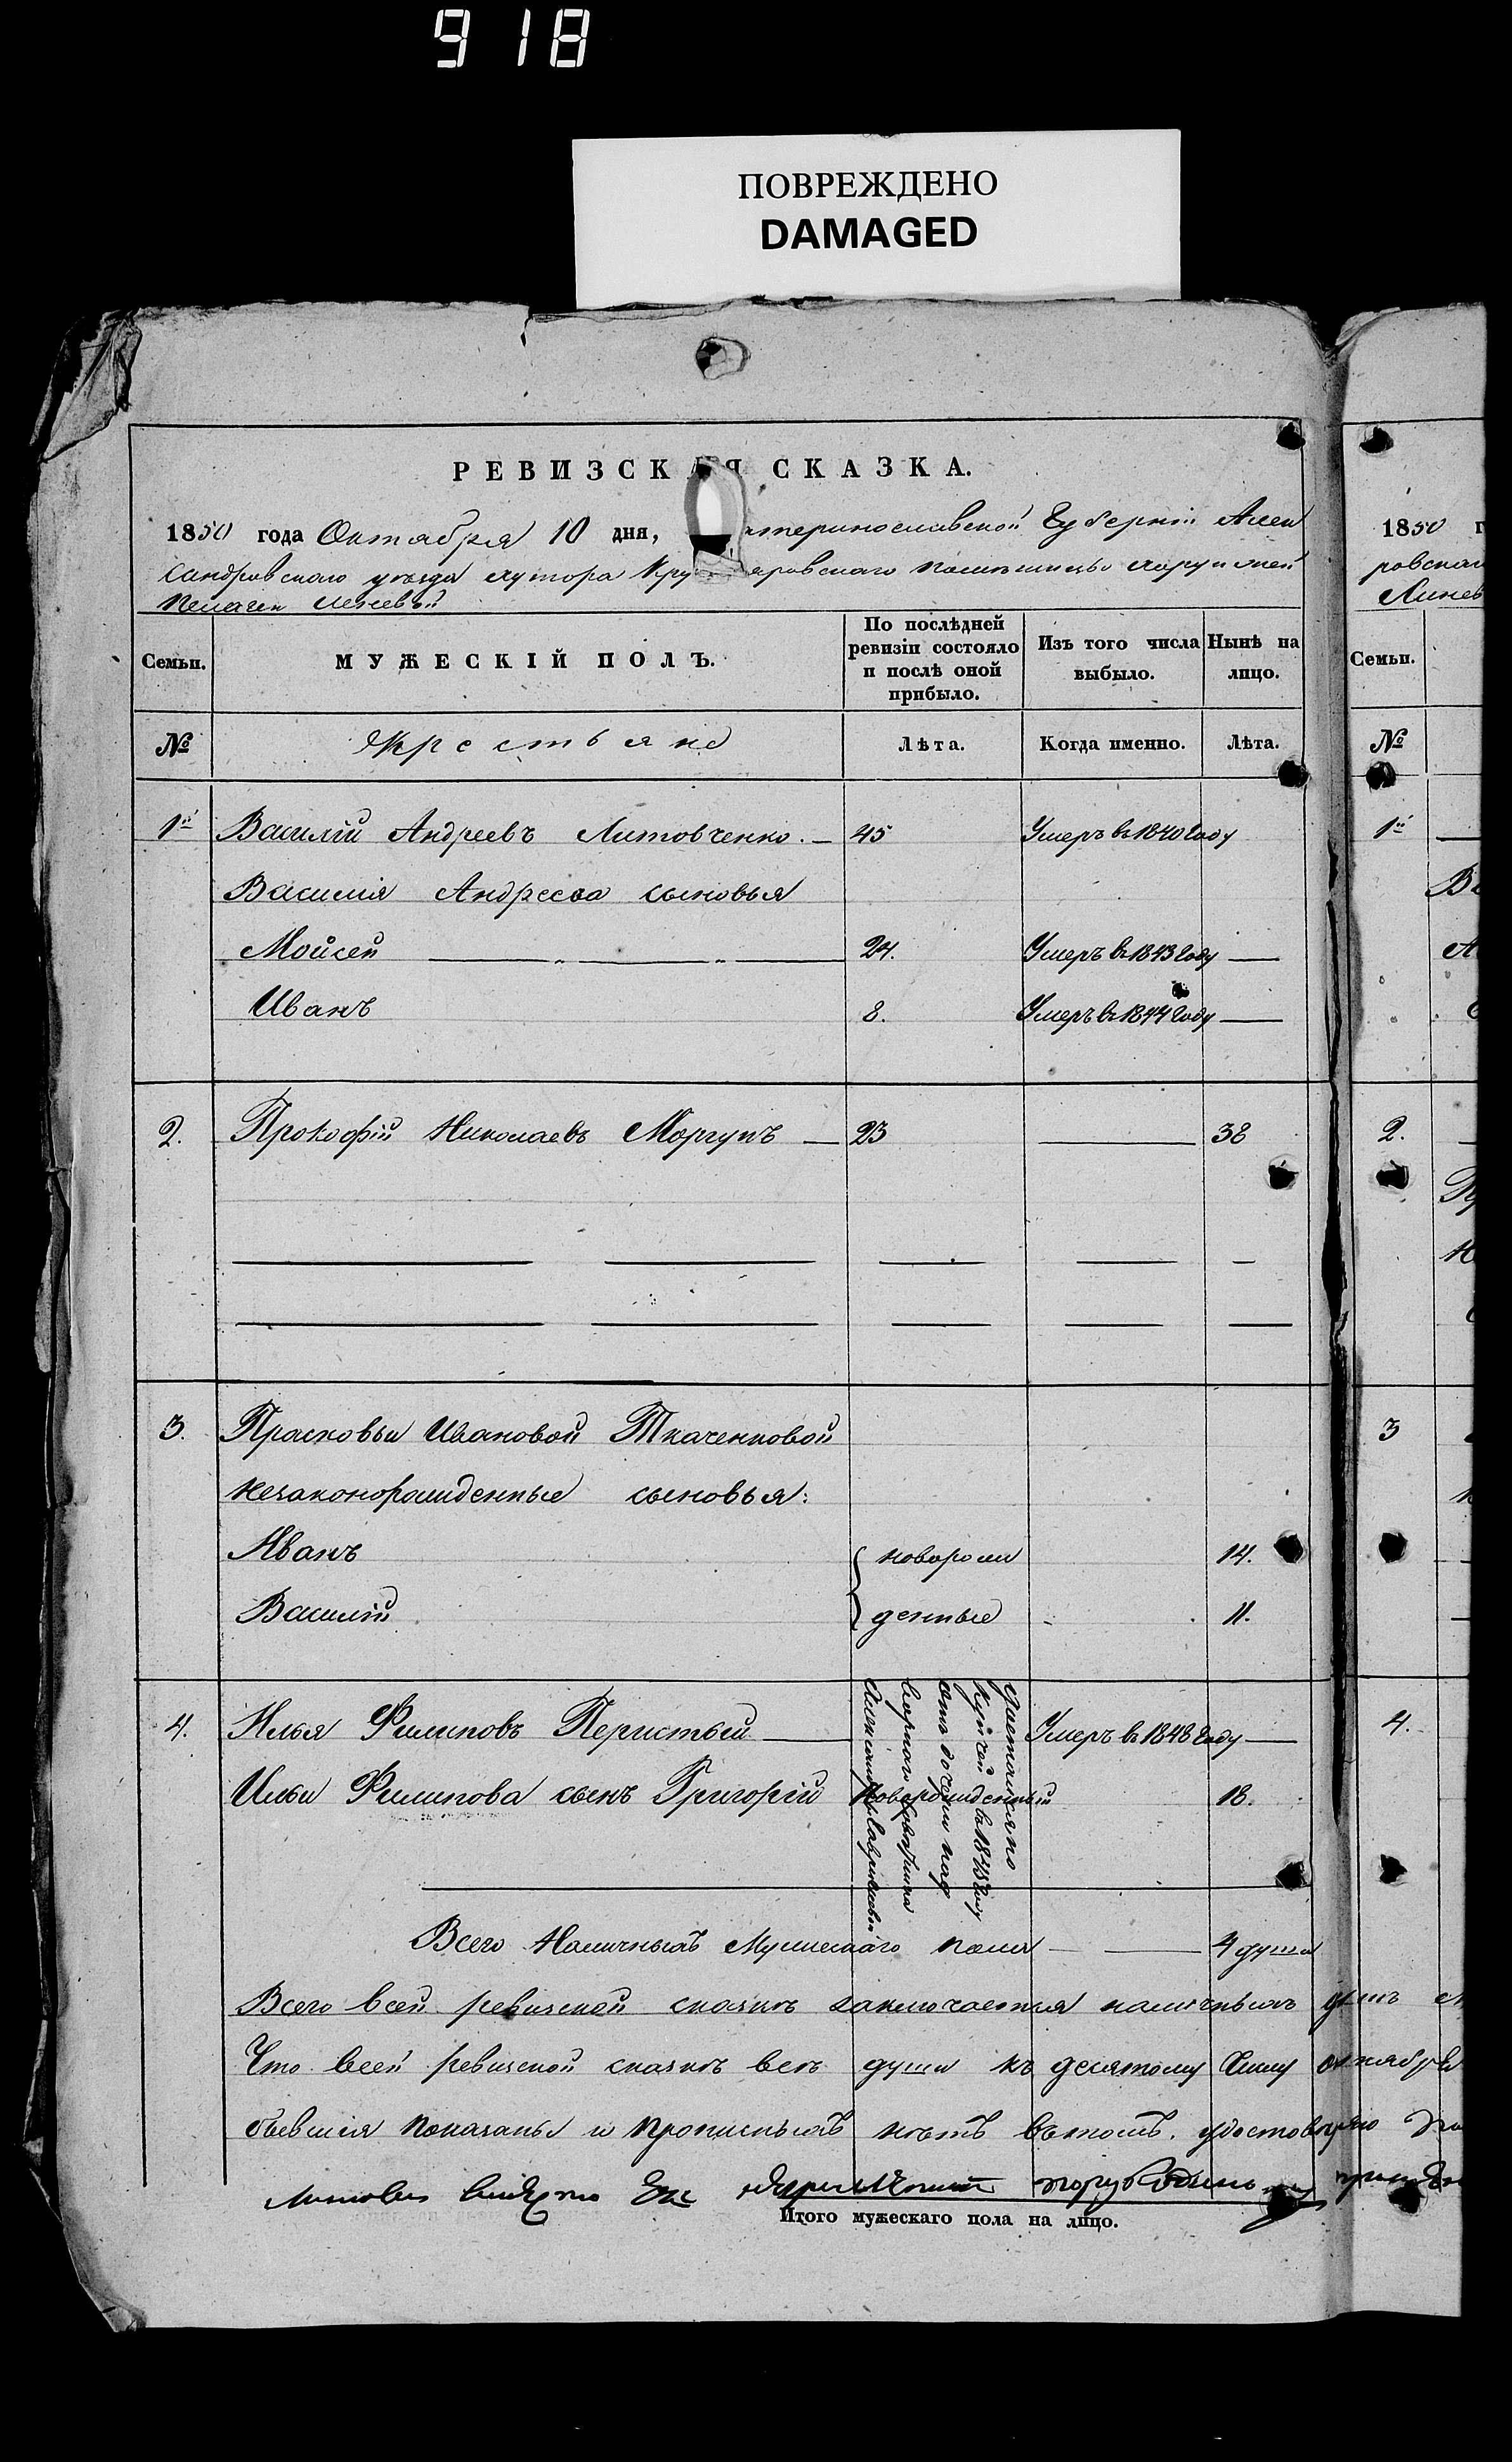 918
ПОВРЕЖДЕНО
DAMAGED
РЕВИЗСКАЯ СКАЗКА.
1850 года Октября 10 дня, атеринославской Губернiи Алек
сандровскаго уѣзда хутора Кру яровскаго помѣщицы хорунжей
Пелагеи
Семьи.
МУЖЕСКІЙ ПОЛЪ.
По послѣдней ревизіи состояло и послѣ оной прибыло.
Изъ того числа выбыло.
Нынѣ на лицо.
№ Крестьяне Лѣта. Когда именно. Лѣта.
1й Василій Андреевъ Литовченко. — 45 Умеръ в 1840 году
Василія Андреева сыновья
Мойсей 24. Умеръ в 1843 году —
Иванъ 8. Умеръ в 1844 году —
2. Прокофій Николаевъ Моргунъ — 23 — 38
3. Прасковьи Ивановой Ткаченковой
незаконорожденные сыновья:
Иванъ новорож 14.
Василій денные 11.
4. Илья Филиповъ Перистый — Умеръ в 1848 году —
Ильи Филипова сынъ Григорій Новорожденный 18.
по
купчей в 1845 году
отъ дочери над
ворнаго
Всего Наличныхъ Мужескаго пола — — 4 души
Всего всей ревизской сказкѣ заключается наличныхъ душъ
Что всей ревизской сказкѣ всѣ души къ десятому Числу октября
бывшія показаны и прописныхъ нѣтъ вътомъ. удостовѣряю
Итого мужескаго пола на лицо.
1850 г
ровскаго
Линев
Семьи.
№
1й
2.
3
4.